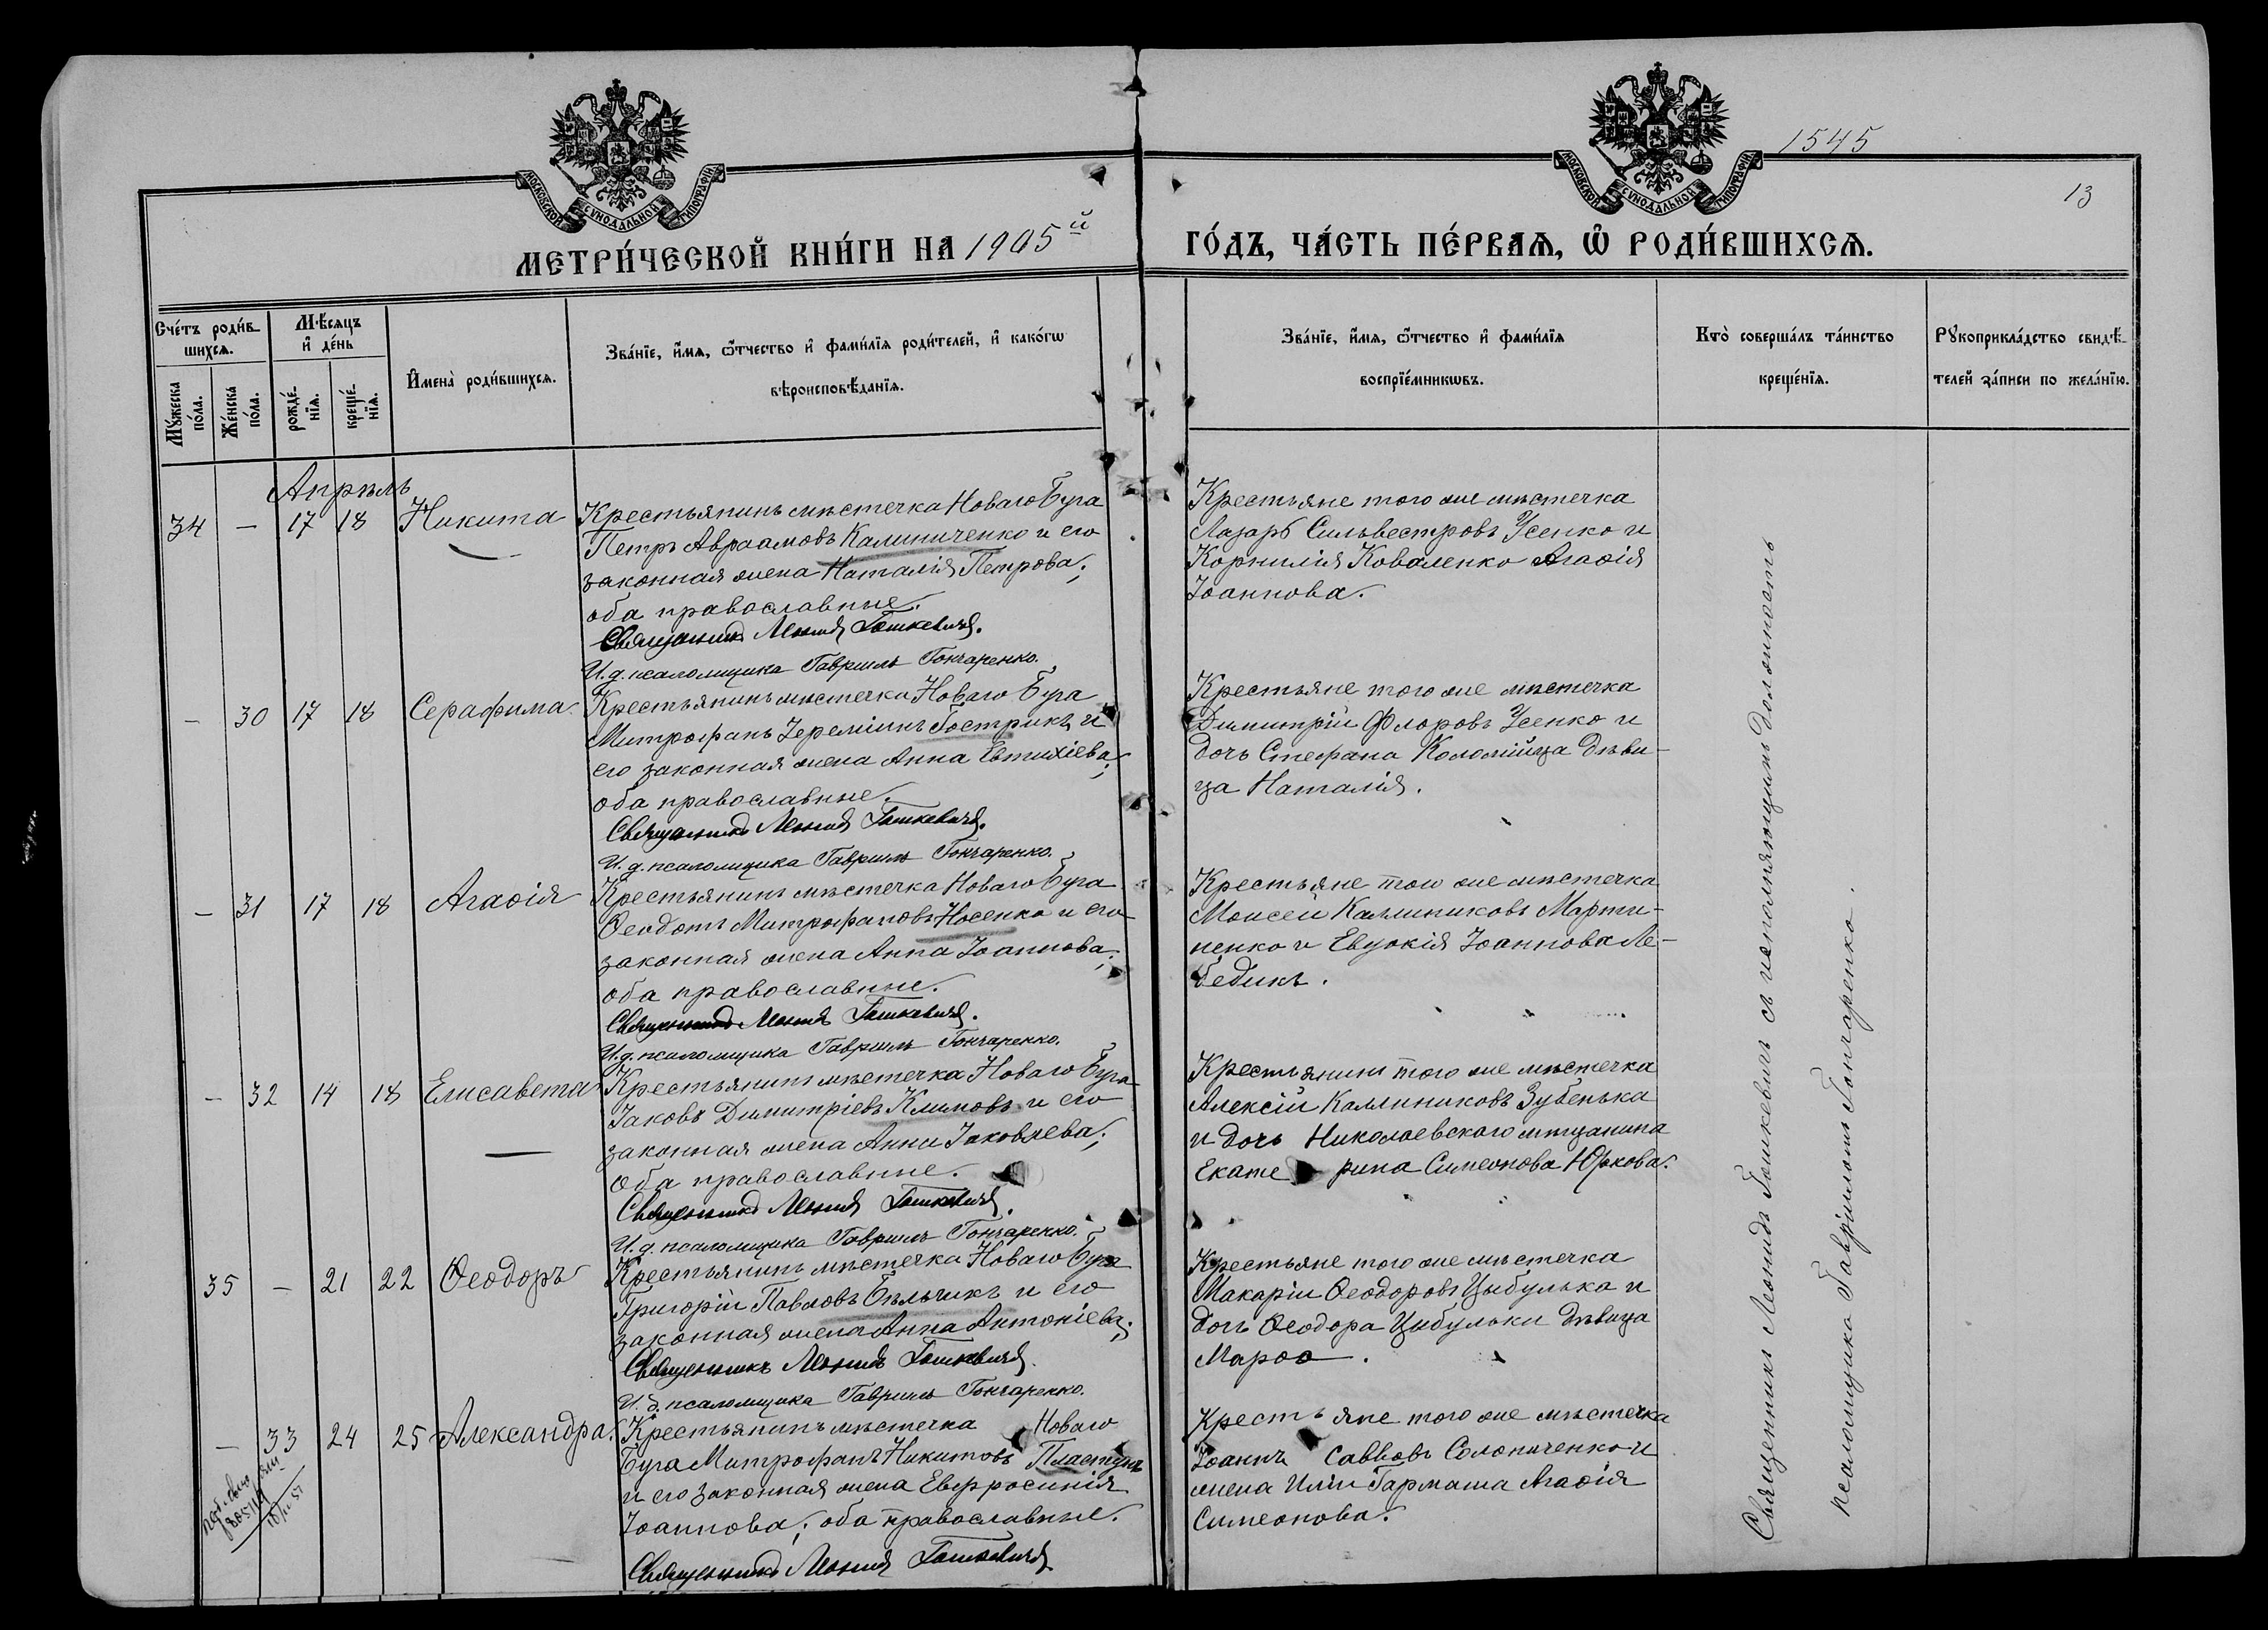 МОСКОВСКОЙ СѴНОДАЛЬНОЙ ТИПОГРАФІИ
МОСКОВСКОЙ СѴНОДАЛЬНОЙ ТИПОГРАФІИ
1545
13
МЕТРИ́ЧЕСКОЙ КНИ́ГИ НА 1905й
ГО́ДЪ, ЧА́СТЬ ПЕ́РВАЯ, Ѽ РОДИ́ВШИХСЯ.
Сче́тъ роди́в-
шихся.
Мѣ́сяцъ
и҆ де́нь
Мꙋ́жеска
по́ла.
Же́нска
по́ла.
рожде́-
нїя.
креще́-
нїя.
И҆мена̀ роди́вшихся.
Зва́нїе, и҆́мя, ѻ҆́тчество и҆ фами́лїя роди́телей, и҆ како́гѡ
вѣроисповѣ́данїя.
Зва́нїе, и҆́мя, ѻ҆́тчество и҆ фами́лїя
воспрїе́мникѡвъ.
Кто̀ соверша́лъ та́инство
креще́нїя.
Рꙋкоприкла́дство свидѣ́-
телей за́писи по жела́нїю.
Апрѣль
34 – 17 18 Никита
Крестьянинъ мѣстечка Новаго Буга
Петръ Авраамовъ Калиниченко и его
законная жена Наталія Петрова;
оба православные.
Священникъ Леонидъ Гошкевичъ.
И.д. псаломщика Гавріилъ Гончаренко.
Крестьяне того же мѣстечка
Лазарь Сильвестровъ Усенко и
Корнилія Коваленко Агаѳія
Іоаннова.
– 30 17 18 Серафима
Крестьянинъ мѣстечка Новаго Буга
Митрофанъ Іереміинъ Гострикъ и
его законная жена Анна Евтихіева;
оба православные.
Священникъ Леонидъ Гошкевичъ.
И.д. псаломщика Гавріилъ Гончаренко.
Крестьяне того же мѣстечка
Димитрій Флоровъ Усенко и
дочь Стефана Коломійца дѣви-
ца Наталія.
– 31 17 18 Агаѳія
Крестьянинъ мѣстечка Новаго Буга
Ѳеодотъ Митрофановъ Носенко и его
законная жена Анна Іоаннова;
оба православные.
Священникъ Леонидъ Гошкевичъ.
И.д. псаломщика Гавріилъ Гончаренко.
Крестьяне того же мѣстечка
Моисей Каллиниковъ Марти-
ненко и Евдокія Іоаннова Ле-
бедикъ.
– 32 14 18 Елисавета
Крестьянинъ мѣстечка Новаго Буга
Іаковъ Димитріевъ Климовъ и его
законная жена Анна Іаковлева;
оба православные.
Священникъ Леонидъ Гошкевичъ.
И.д. псаломщика Гавріилъ Гончаренко.
Крестьянинъ того же мѣстечка
Алексій Каллиниковъ Зубенька
и дочь Николаевскаго мѣщанина
Екатерина Симеонова Юркова.
35 – 21 22 Ѳеодоръ
Крестьянинъ мѣстечка Новаго Буга
Григорій Павловъ Бѣльчикъ и его
законная жена Анна Антоніева;
Священникъ Леонидъ Гошкевичъ.
И.д. псаломщика Гавріилъ Гончаренко.
Крестьяне того же мѣстечка
Макарій Ѳеодоровъ Цыбулька и
дочь Ѳеодора Цыбульки дѣвица
Марѳа.
– 33 24 25 Александра
Крестьянинъ мѣстечка Новаго
Буга Митрофанъ Никитовъ Пластунъ
и его законная жена Евфросинія
Іоаннова; оба православные.
Священникъ Леонидъ Гошкевичъ
Крестьяне того же мѣстечка
Іоаннъ Саввовъ Солопиченко и
жена Иліи Гармаша Агаѳія
Симеонова.
Священникъ Леонидъ Гошкевичъ съ исполняющимъ должность
псаломщика Гавріиломъ Гончаренко.